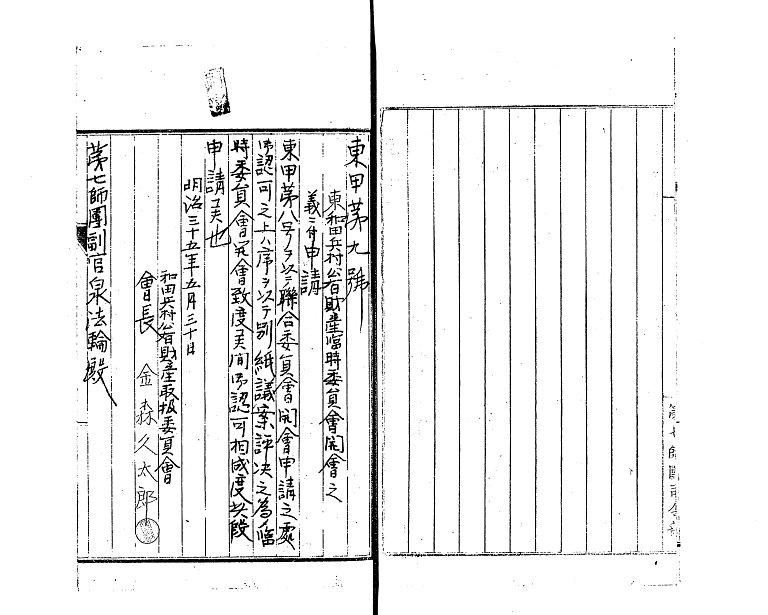 東甲第九號
東和田兵村公有財產臨時委員會開會之
義ニ付申請
東甲第八号ヲ以テ聯合委員會開會申請之處
御認可之上ハ序ヲ以テ別紙議案評決之為臨
時委員會開會致度候間御認可相成度此段
申請候也
明治三十五年五月三十日
和田兵村公有財產取扱委員會
會長 金森久太郎
第七師團副官泉法輪殿
第七師團司令部